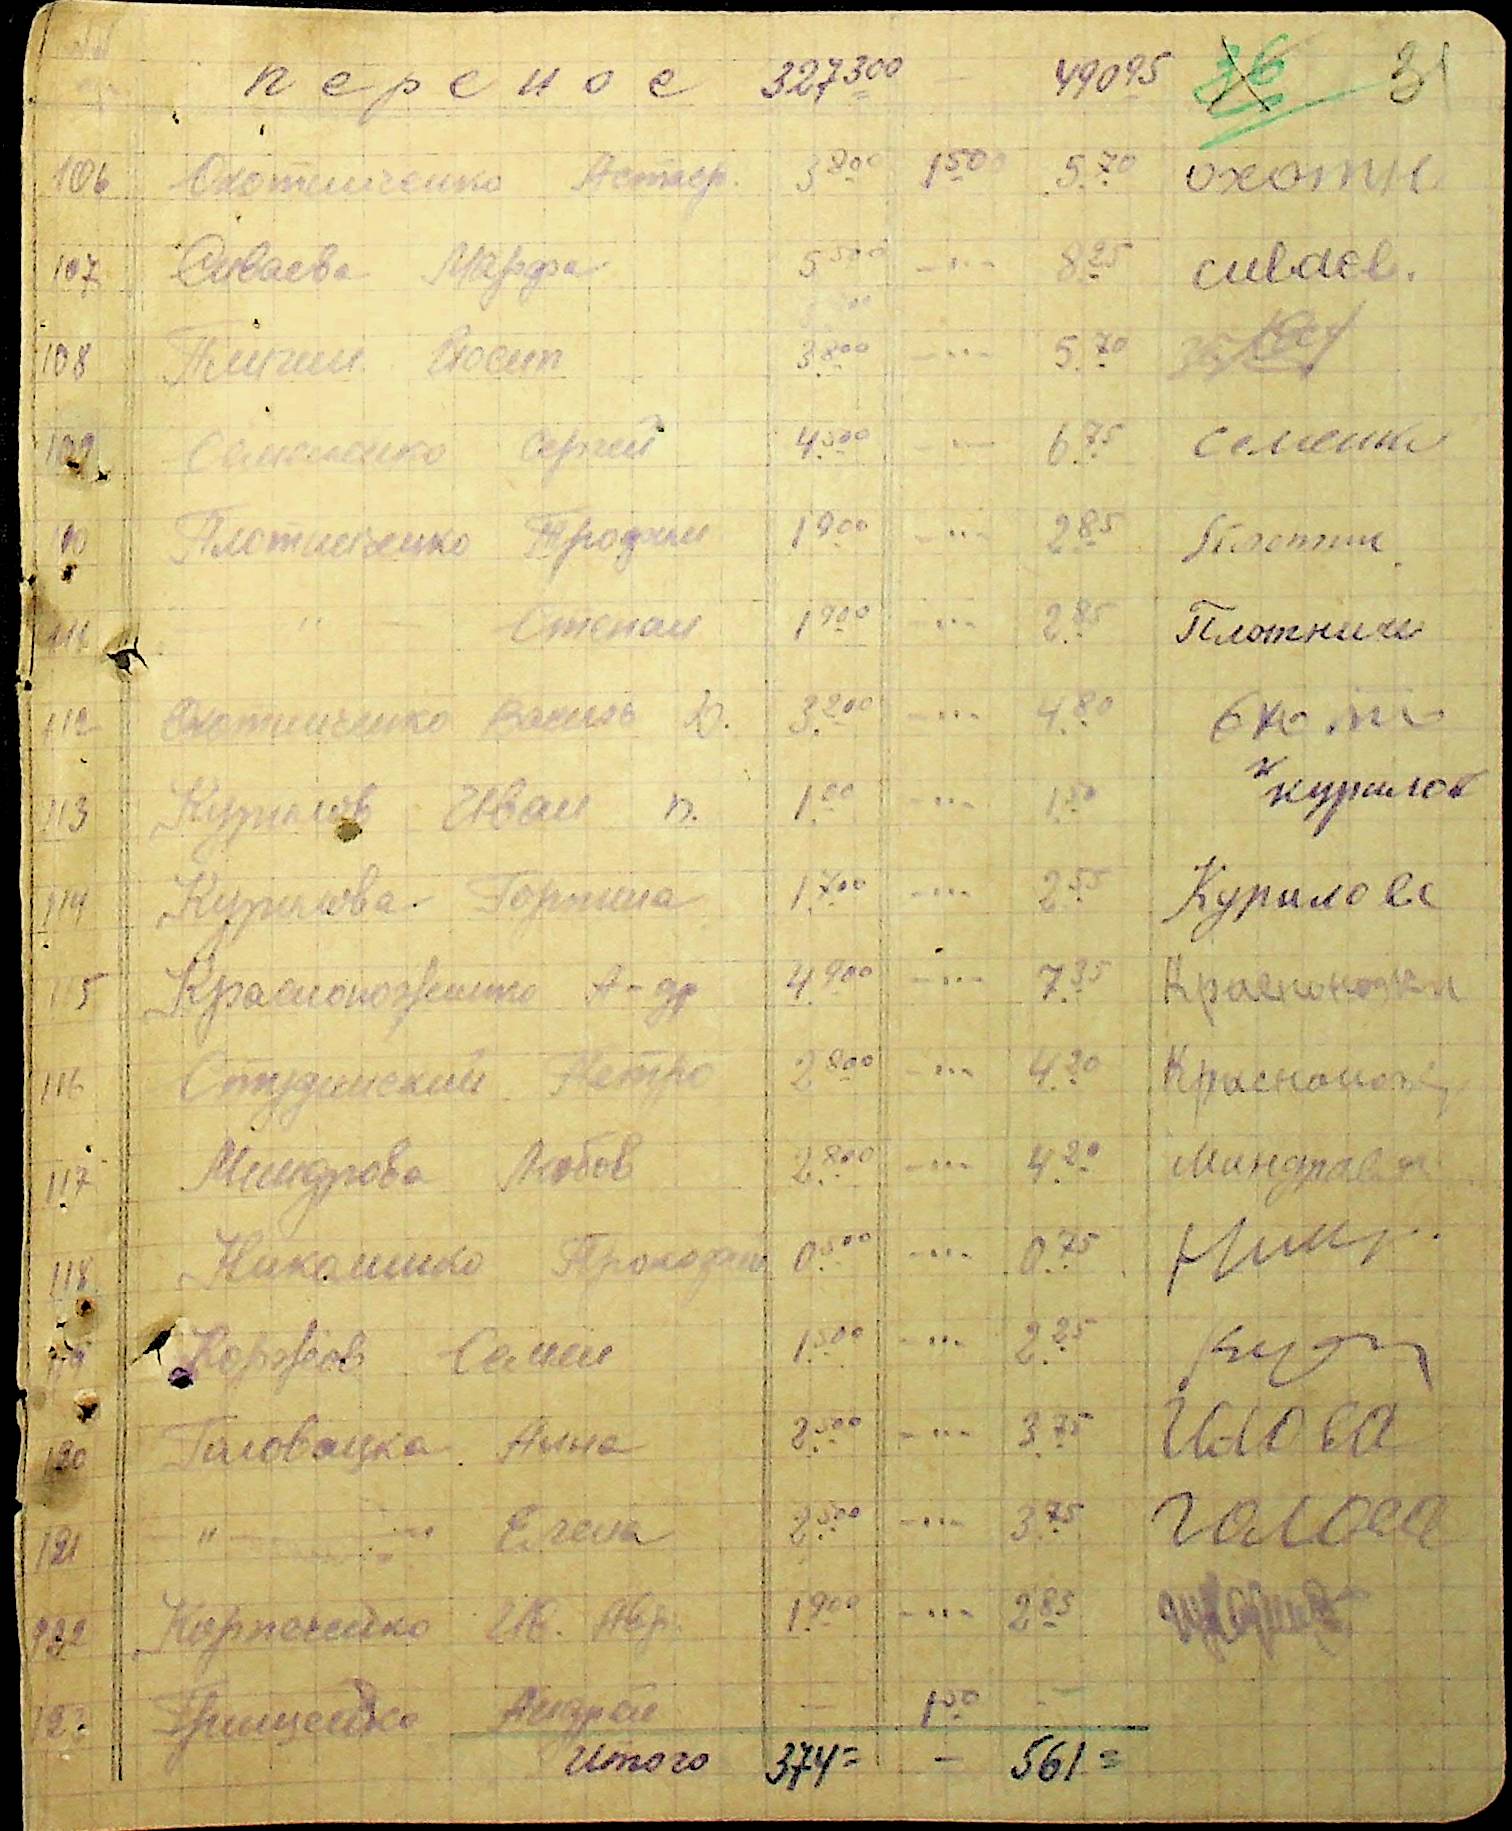 перенос 327,300 490 95 36 31
106 Охотниченко Нестер. 3.800 1500 5.70 охотн
107 Сиваева Марфа 5500 -"- 8.25 сиваев.
108 Пличии Йосип 3.800 -"- 5.70
109 Семененко Сергей 4.500 -"- 6.75 Семенки
110 Плотниченко Трофим 1900 -"- 2.85 Плотни
111 - " - Степан 1900 -"- 2.85 Плотничи
112 Охотниченко Василь 3.200 -"- 4.80
113 Курилов Иван п. 1.00 -"- 1.50 курилов
114 Курилова Горпина 1.700 -"- 2.55 Курилова
115 Красноноженко А-др 4.900 -"- 7.35 Красноножк
116 Студинский Петро 2800 -"- 4.20 Краснонож
117 Миндрова Любов 2.800 -"- 4.20 Миндрава
118 Николенко Прокофий 0.500 -"- 0.75
119 Коржов Семен 1.500 -"- 2.25
120 Головацка Анна 2.500 -"- 3.75
121 - " - Елена 2.500 -"- 3.75 голова
122 Карпаченко Ив. 1.900 -"- 2.85
123 Грищенко Андрей - 1.50 -
Итого 374= - 561=